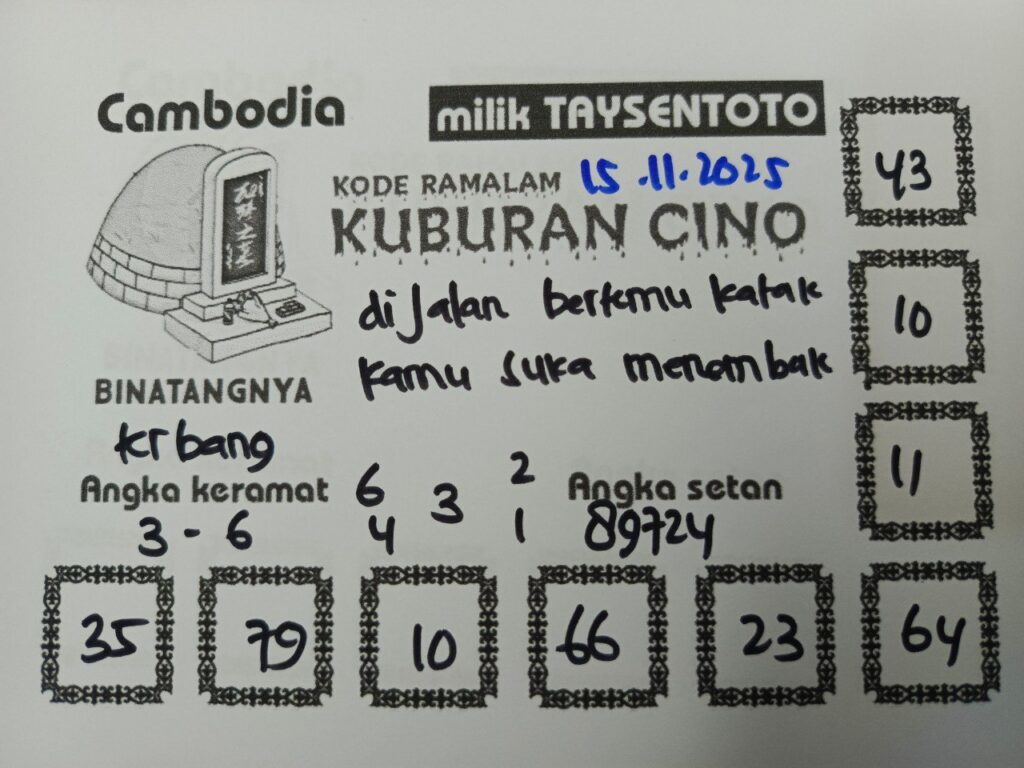 Cambodia
milik TAYSENTOTO
KODE RAMALAM 15.11.2025
KUBURAN CINO
di jalan bertemu katak
kamu suka menombak
BINATANGNYA
krbang
Angka keramat
3 - 6
6 3 2
4 1
Angka setan
89724
43
10
11
35 79 10 66 23 64